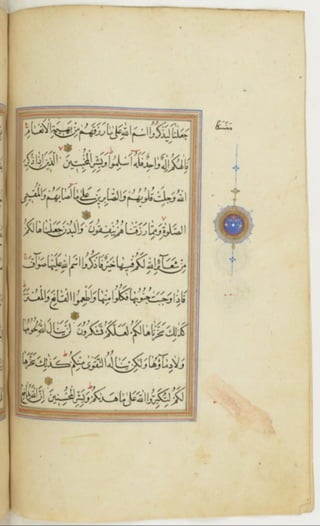 جعلنا ليذكروا اسم الله على ما رزقهم من بهيمة الانعام
فالهكم اله واحد فله اسلموا وبشر المخبتين الذين اذا ذكر
الله وجلت قلوبهم والصابرين على ما اصابهم والمقيمى
الصلوة ومما رزقناهم ينفقون والبدن جعلناها لكم
من شعائر الله لكم فيها خير فاذكروا اسم الله عليها صواف
فاذا وجبت جنوبها فكلوا منها واطعموا القانع والمعتر
كذلك سخرناها لكم لعلكم تشكرون لن ينال الله لحومها
ولا دماؤها ولكن يناله التقوى منكم كذلك سخرها
لكم لتكبروا الله على ما هديكم وبشر المحسنين ان الله يدافع